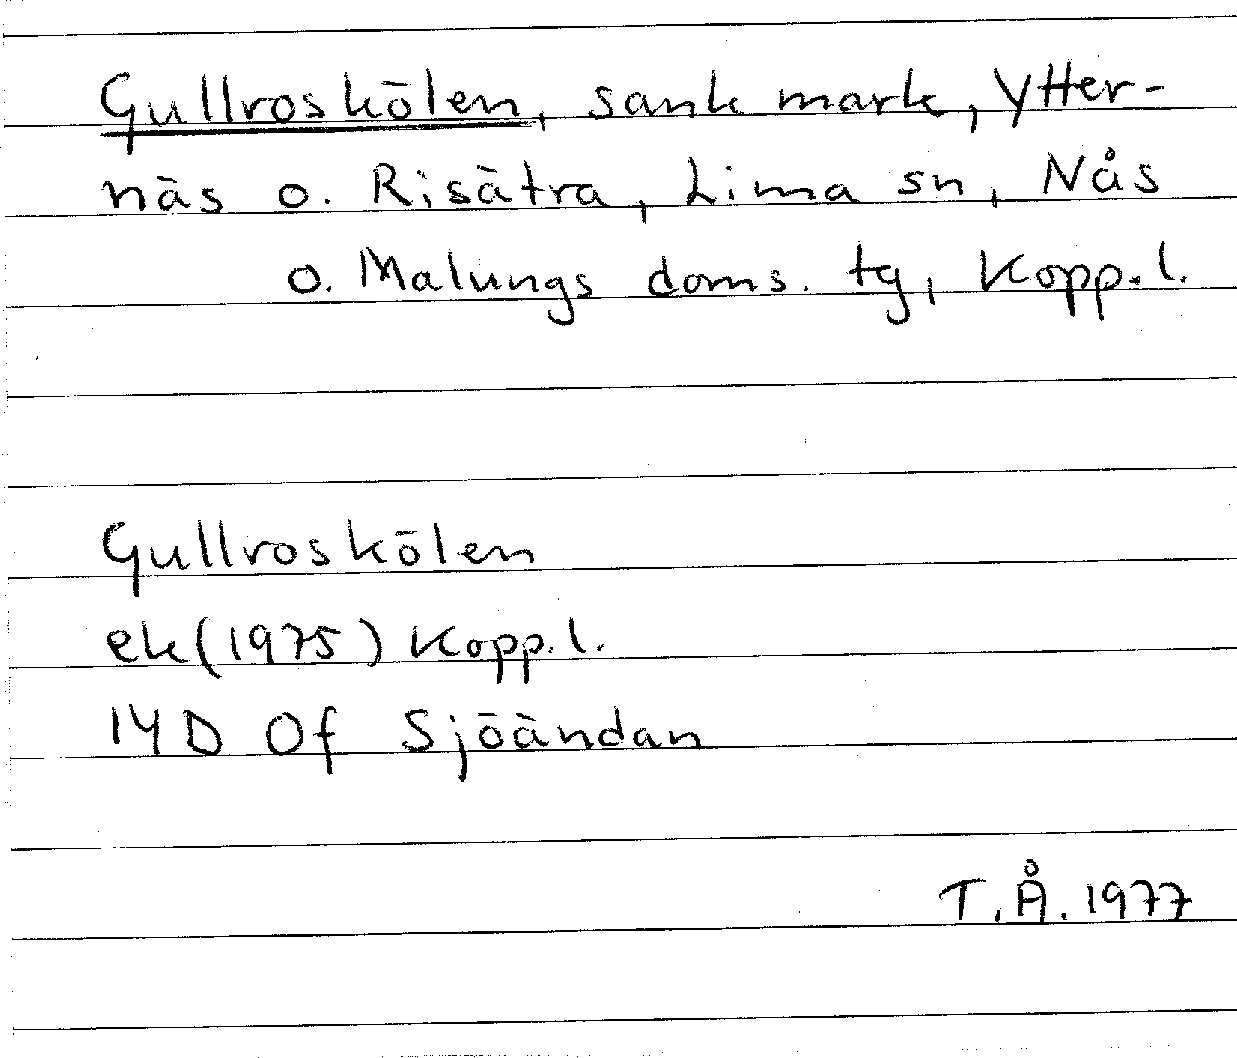 Gullroskölen, sank mark, Ytter-
näs o. Risätra, Lima sn, Nås
o. Malungs doms. tg, Kopp. l.
Gullroskölen
ek (1975) Kopp. l.
14D 0f Sjöändan
T.Å. 1977